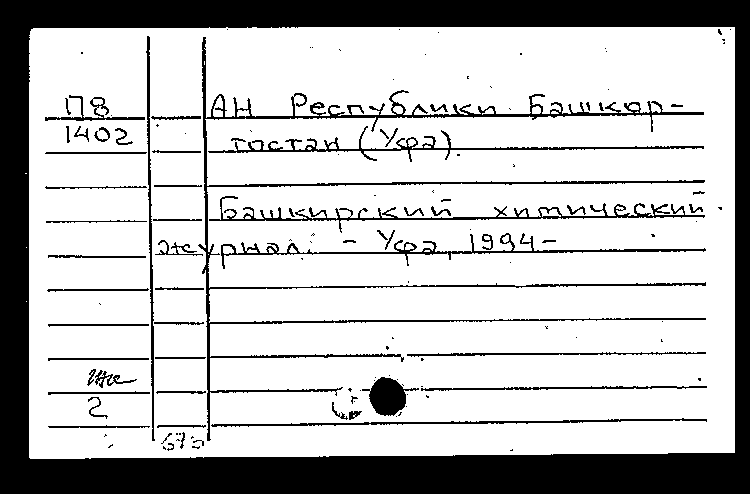 П8
1402
АН Республики Башкор-
тостан (Уфа).
Башкирский химический
журнал. - Уфа, 1994-
2